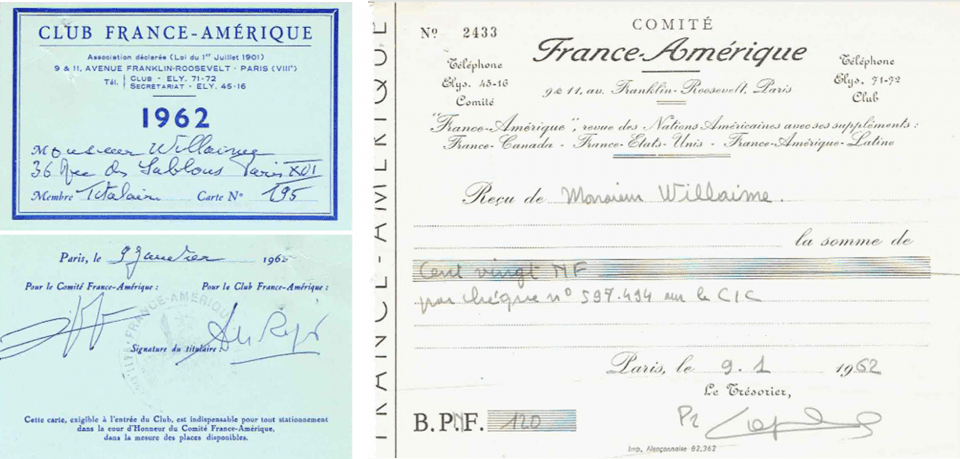 CLUB FRANCE-AMÉRIQUE
Association déclarée (Loi du 1er Juillet 1901)
9 & 11, AVENUE FRANKLIN-ROOSEVELT - PARIS (VIIIe)
Tél. CLUB - ELY. 71-72
SECRÉTARIAT - ELY. 45-16
1962
Monsieur Willaime
36 Rue des Sablons Paris XVI
Membre Titulaire Carte No 195
Paris, le 9 janvier 1962
Pour le Comité France-Amérique : Pour le Club France-Amérique :
FRANCE-AMÉRIQUE
Signature du titulaire :
Cette carte, exigible à l'entrée du Club, est indispensable pour tout stationnement
dans la cour d'Honneur du Comité France-Amérique,
dans la mesure des places disponibles.
FRANCE-AMÉRIQUE
No 2433
COMITÉ
France-Amérique
Téléphone
Elys. 45-16
Comité
9 & 11, av. Franklin-Roosevelt, Paris
Téléphone
Elys. 71-72
Club
"France-Amérique", revue des Nations Américaines avec ses suppléments :
France-Canada - France-Etats-Unis - France-Amérique-Latine
Reçu de Monsieur Willaime.
la somme de
Cent vingt NF
par chèque no 597.494 sur le CIC
Paris, le 9.1 1962
Le Trésorier,
B.P.NF. 120
Imp. Alençonnaise 82.362